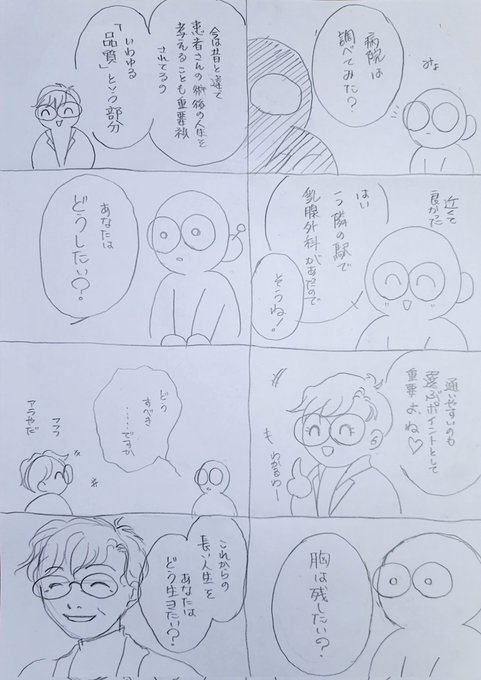 病院は
調べてみた?
近くて
良かった
はい
一つ隣の駅で
乳腺外科があたので
そうね!
通いやすいのも
選ぶポイントとして
重要よね♡
わかるわー
胸は残したいの?
今は昔と違て
患者さんの術後の人生を
考えることも重要視
されてるの
いわゆる
「品質」という部分
あなたは
どうしたい?
どう
すべき
……ですか
フフフ
アラやだ
これからの
長い人生を
あなたは
どう生きたい?